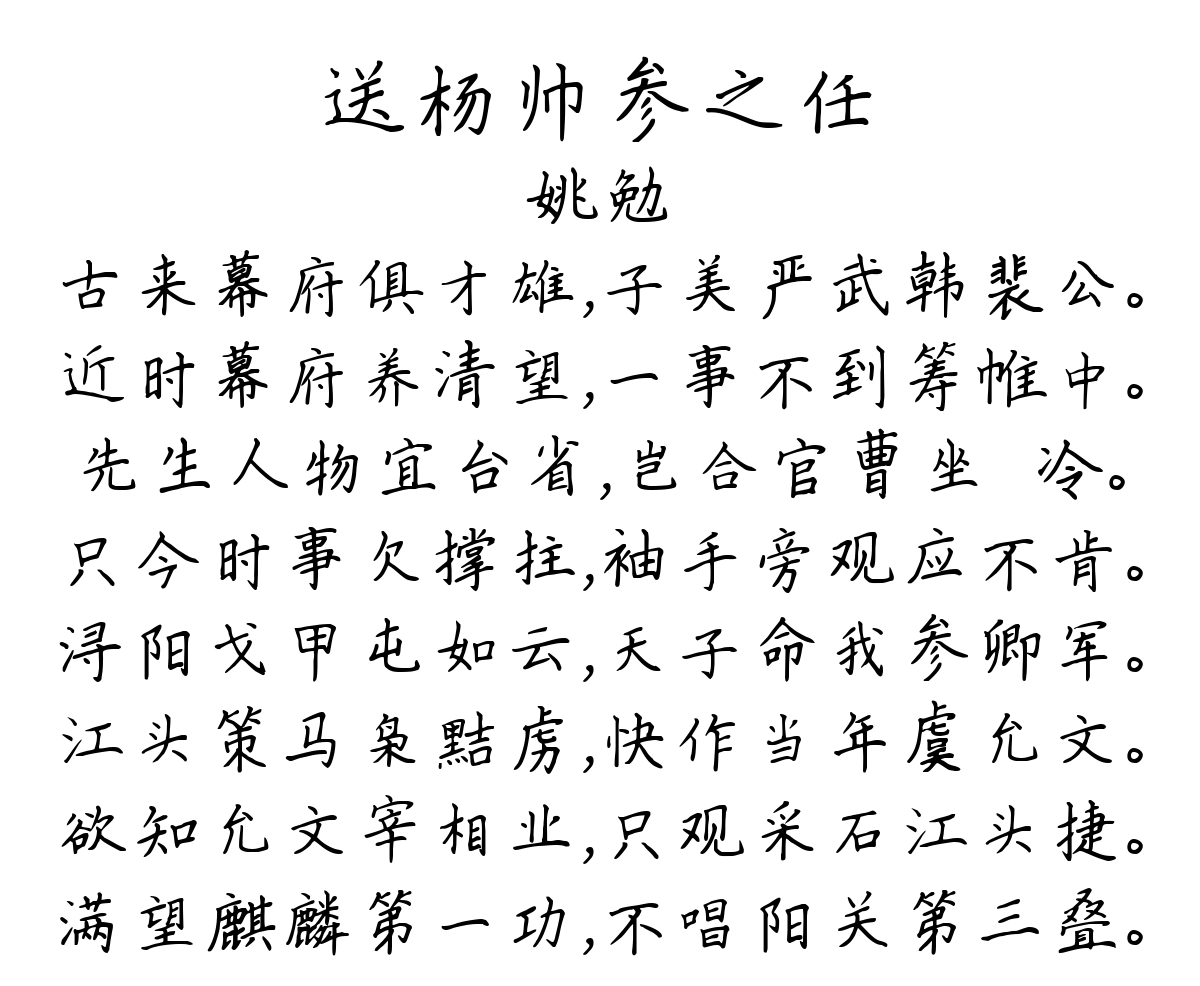 送杨帅参之任
姚勉
古来幕府俱才雄,子美严武韩裴公。
近时幕府养清望,一事不到筹帷中。
先生人物宜台省,岂合官曹坐 冷。
只今时事欠撑拄,袖手旁观应不肯。
浔阳戈甲屯如云,天子命我参卿军。
江头策马枭黠虏,快作当年虞允文。
欲知允文宰相业,只观采石江头捷。
满望麒麟第一功,不唱阳关第三叠。